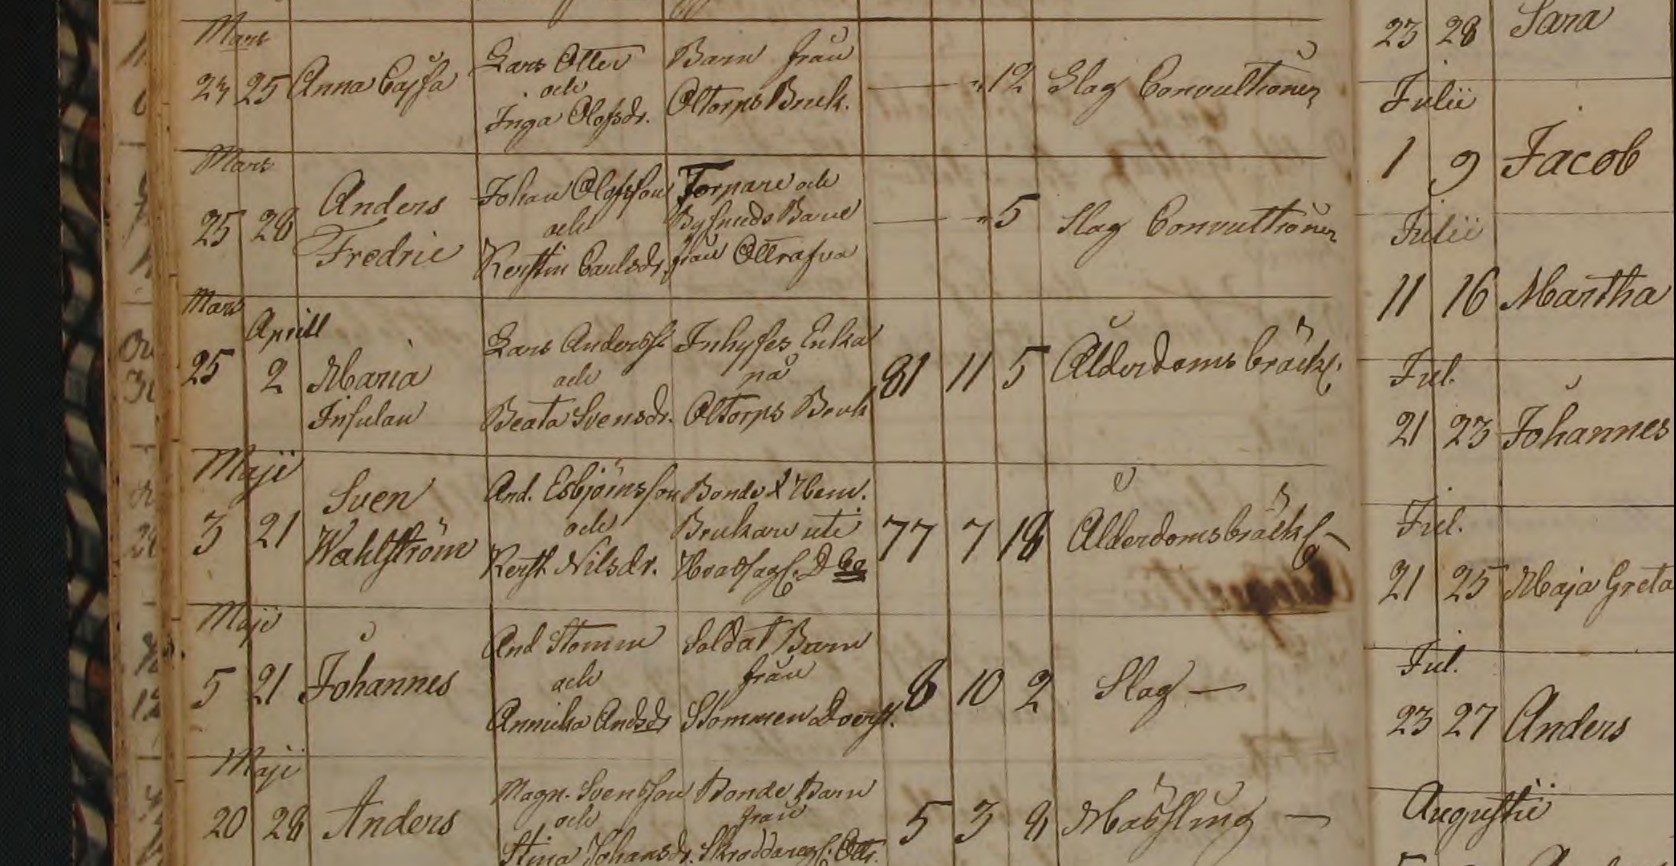 Mars
23 25 Anna Cajsa
Lars Otter
och
Inga Olofsdr.
Barn från
Oltorps Bruk.
" 12 Slag Convultioner
Mars
25 28 Anders
Fredric
Johan Olofsson
och
Kerstin Carlsdr.
Torpare och
Bysmeds Barn
från Ottrafva
" 5 Slag Convultioner
Mars
Aprill
25 2 Maria
Insulan
Lars Anderss.
och
Beata Svensdr.
Inhyses Enka
på
Oltorps Bruk
81 11 5 Ålderdoms bräckl.
Maji
3 21 Sven
Wahlström
And. Esbjörnsson
och
Kerst. Nilsdr.
Bonde & Hem.
Brukare uti
77 7 18 Ålderdomsbräckl.
Maji
5 21 Johannes
And Stomm
och
Annicka Andsdr
Soldat Barn
från
Stommen
8 10 2 Slag
Maji
20 28 Anders
Magn. Svensson
och
Stina Johansdr.
Bonde Barn
från
5 3 9 Mässling
23 28 Sara
Julii
1 9 Jacob
Julii
11 16 Martha
Jul.
21 23 Johannes
Jul.
21 25 Maja Greta
Jul.
23 27 Anders
Augustii